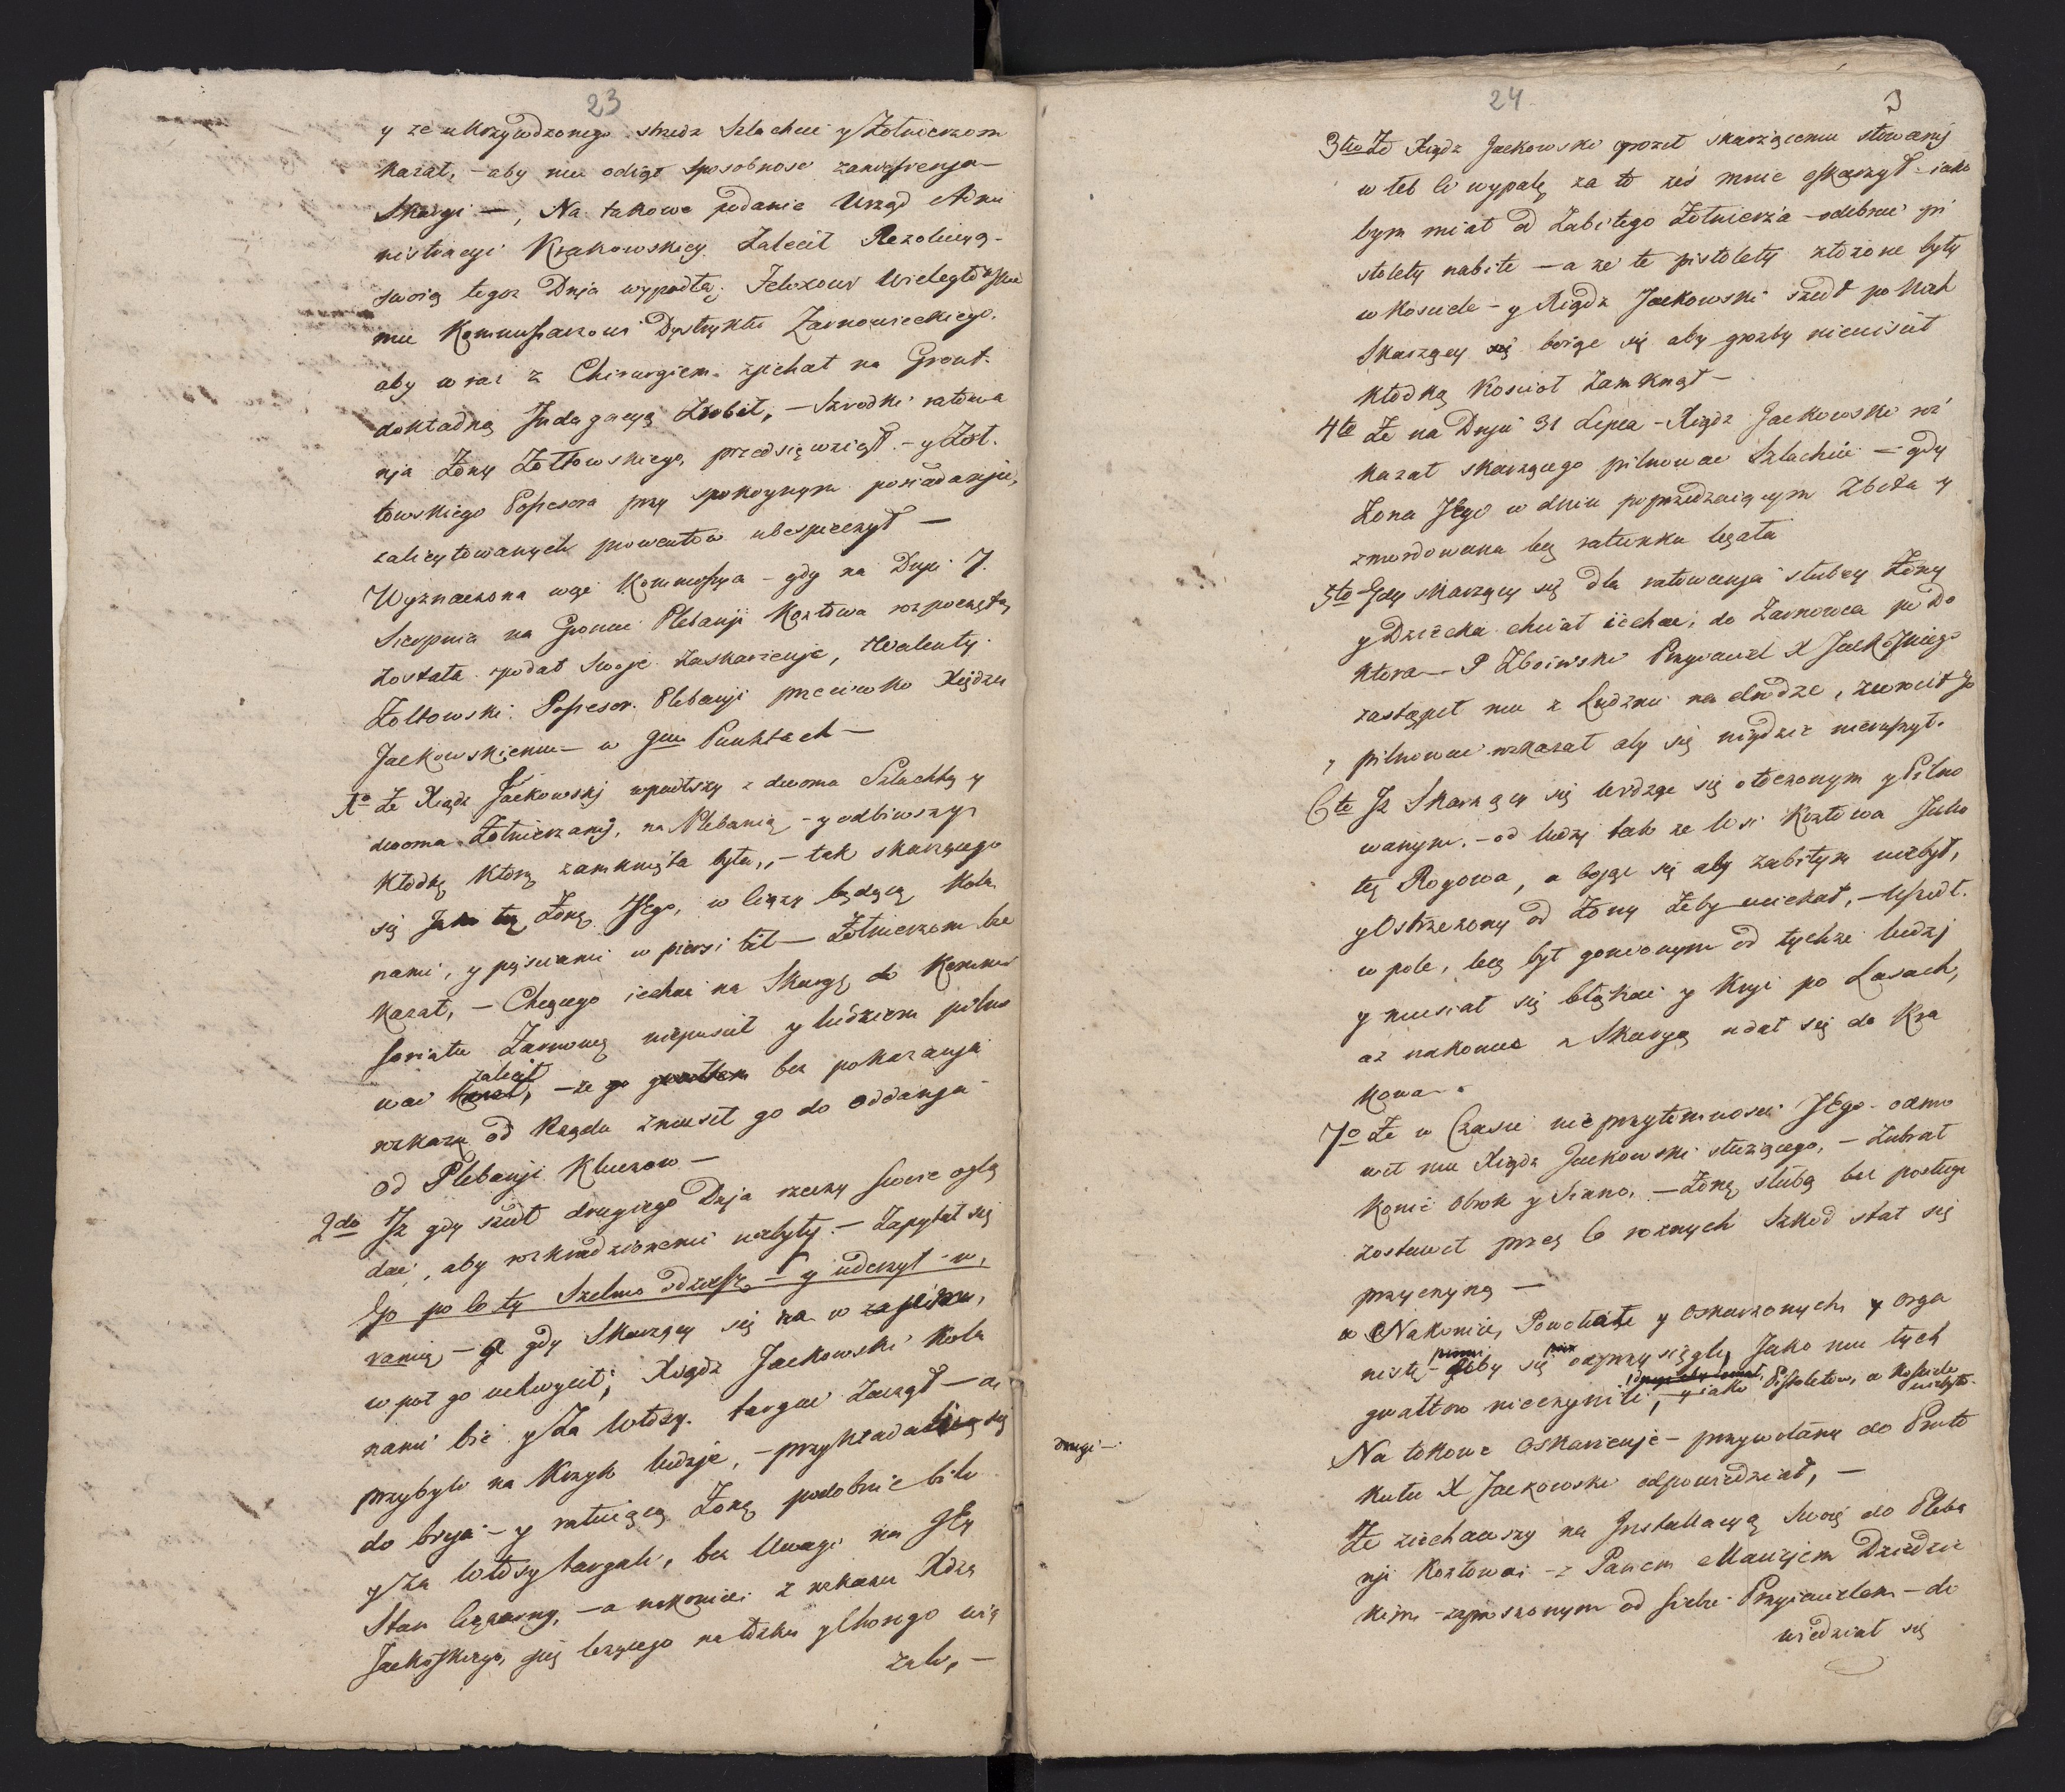 23
y ze ukrzywdzonego strzedz Szlachcie y Żołnierzom
kazał, – aby mu odiąć sposobnosc zaniesienja
Skargi —, Na takowe podanie Urząd Admi
nistracyi Krakowskiey Zalecił Rezolucyą
swoią tegoz Dnja wypadłą,
mu Kommissarzowi Dystryktu Zarnowieckiego.
aby wraz z Chirurgiem zjechał na Grunt.
dokładną Indagacyą Zrobił, – Szrodki ratowa
nja Żony Żołtowskiego, przedsięwziął – y Żoł.
towskiego Possesora przy spokoynym posiadanju,
zalicytowanych prowentow ubespieczył —
Wyznaczona więc Kommissya – gdy na Dnju 7.
Sierpnia na Gruncie Plebanji Kozłowa rozpoczętą
została podał Swoje Zaskarzenje, Walenty
Żołtowski Possesor Plebanji przeciwko Xiędzu
Jackowskiemu – w gciu Punktach —
1o Że Xiądz Jackowskj wpadłszy z dwoma Szlachtą y
dwoma Żołnierzamj, na Plebanią – y odbiwszy
Kłodkę którą zamknięta była, – tak skarzącego
się Jako tez Żonę JEgo, w ciązy będącą Kola
nami, y pięsciami w piersi bił – Żołnierzom bić
kazał, – Chcącego iechac na Skargę do Kommis
soriatu Zarnowca niepuscił y ludziom pilno
wac zalecił kazał, – ze go gwałtem bez pokazanja
rozkazu od Rządu zmusił go do oddanja
od Plebanji Kluczow —
2do Jz gdy szedł drugiego Dnja rzeczy swoie oglą
dać, aby rozkradzionemi niebyły. – Zapytał się
Go po co ty Szelmo – y uderzył w
– a gdy Skarzący się
wpoł go uchwycił, Xiądz Jackowski kola
nami bić y Za włosy targac Zaczął – a
przybyli na Krzyk ludzje, – przykładali się
do bicja – y ratuiącą Żonę podobnie bili
y Za włosy targali, bez Uwagi na JEy
Stan Ciężarny, – a nakoniec z rozkazu Xdza
leżącego na łozku y Chorego wią
zali, –
24
3
3tio Że Xiądz Jackowski groził skarzącemu słowamj
w łeb Ci wypalę za to żeś mnie oskarzył iako
bym miał od Zabitego Żołnierza – odebrac pi
stolety nabite – a ze te pistolety złozone były
w Kosciele – y Xiądz Jackowski szedł po nich
Skarzący się boiąc się aby grozby nieuiscił
kłodką Kosciół Zamknął –
4to Że na Dnju 31 Lipca – Xiądz Jackowski roz
kazał skarzącego pilnowac Szlachcie – gdy
Zona JEgo w dniu poprzedzaiącym Zbita y
zmordowana bez ratunku leżała
5to Gdy skarzący się dla ratowanja słabey Żony
y Dziecka chciał iechac, do Zarnowca po Do
ktora – P Zboiwski Przyiaciel X
zastąpił mu z Ludzmi na drodze, zawrocił go
y pilnowac rozkazał aby się nigdzie nieruszył.
6to Jz Skarzący się widząc się otoczonym y Pilno
wanym – od ludzj tak ze Wsi Kozłowa Jako
tez Rogowa, a bojąc się aby zabitym niebył,
y Ostrzezony od Żony Żeby uciekał, – uszedł
w pole, lecz był gonionym od tychze ludzj
y musiał się błąkać y Kryć po Lasach,
az nakoniec z Skargą udał się do Kra
kowa.
7o Że w Czasie nieprzytomnosci JEgo – odmo
wił mu Xiądz Jackowski służącego, – Zabrał
Konie Obrok y Siano, – Żonę słabą bez posługi
zostawił przez co roznych Szkod stał się
przyczyną —
Nakoniec, Powołał y oskarzonych, y orga
nistę – żeby się przysięgli, Jako mu tych
gwałtow nieczynili, y iako Pistoletow, w Kosciele niebyło.
drugi –
Na takowe Oskarzenje – przywołany do Proto
kułu X Jackowski odpowiedział, –
Że ziechawszy na Installacyą Swoią do Pleba
nji Kozłowai – z Panem Maciejem Dziedzic
kim – zaproszonym od siebie Przyiacielem – do
wiedział się